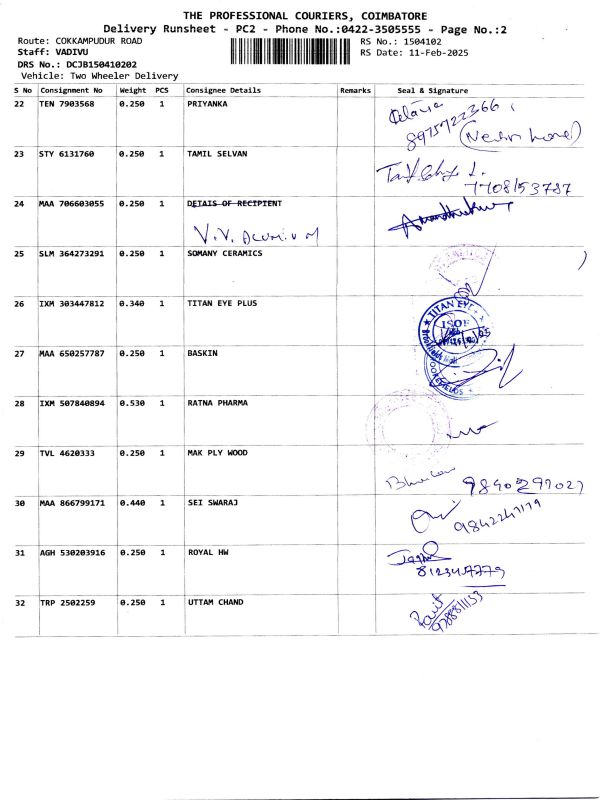 THE PROFESSIONAL COURIERS, COIMBATORE
Delivery Runsheet - PC2 - Phone No.:0422-3505555 - Page No.:2
Route: COKKAMPUDUR ROAD RS No.: 1504102
Staff: VADIVU RS Date: 11-Feb-2025
DRS No.: DCJB150410202
Vehicle: Two Wheeler Delivery
S No Consignment No Weight PCS Consignee Details Remarks Seal & Signature
22 TEN 7903568 0.250 1 PRIYANKA
8975722366
23 STY 6131760 0.250 1 TAMIL SELVAN
7708153787
24 MAA 706603055 0.250 1 DETAIS OF RECIPIENT
V.V.
25 SLM 364273291 0.250 1 SOMANY CERAMICS
26 IXM 303447812 0.340 1 TITAN EYE PLUS
TITAN EYE
27 MAA 650257787 0.250 1 BASKIN
28 IXM 507840894 0.530 1 RATNA PHARMA
29 TVL 4620333 0.250 1 MAK PLY WOOD
30 MAA 866799171 0.440 1 SEI SWARAJ
31 AGH 530203916 0.250 1 ROYAL HW
32 TRP 2502259 0.250 1 UTTAM CHAND